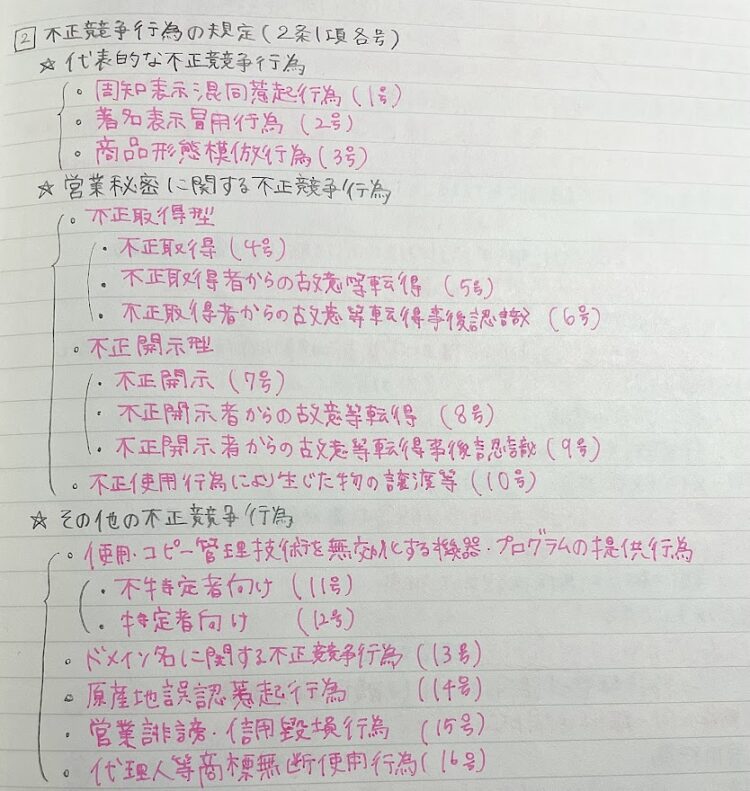 2 不正競争行為の規定(2条1項各号)
☆ 代表的な不正競争行為
・周知表示混同惹起行為(1号)
・著名表示冒用行為(2号)
・商品形態模倣行為(3号)
☆ 営業秘密に関する不正競争行為
・不正取得型
・不正取得(4号)
・不正取得者からの故意等転得(5号)
・不正取得者からの故意等転得事後認識(6号)
・不正開示型
・不正開示(7号)
・不正開示者からの故意等転得(8号)
・不正開示者からの故意等転得事後認識(9号)
・不正使用行為により生じた物の譲渡等(10号)
☆ その他の不正競争行為
・使用・コピー管理技術を無効化する機器・プログラムの提供行為
・不特定者向け(11号)
・特定者向け(12号)
・ドメイン名に関する不正競争行為(13号)
・原産地誤認惹起行為(14号)
・営業誹謗・信用毀損行為(15号)
・代理人等商標無断使用行為(16号)